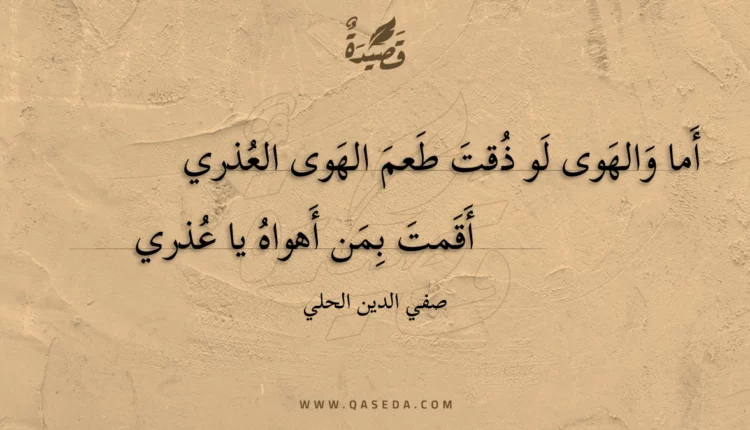 قَصِيدَةٌ
أَما وَالهَوى لَو ذُقتَ طَعمَ الهَوى العُذري
أَقَمتَ بِمَن أَهواهُ يا عُذري
صفي الدين الحلي
WWW.QASEDA.COM